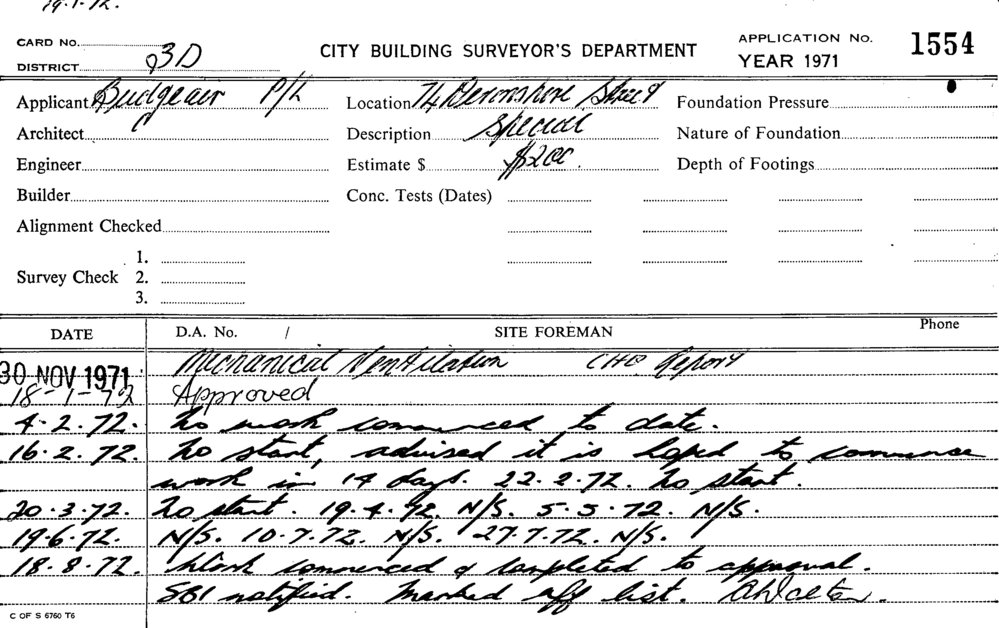 19.1.72.
CARD No.
DISTRICT 3D
CITY BUILDING SURVEYOR'S DEPARTMENT
APPLICATION No. 1554
YEAR 1971
Applicant Budgeair P/L Location 74 Devonshire Street Foundation Pressure
Architect Description Special Nature of Foundation
Engineer Estimate $ $200. Depth of Footings
Builder Conc. Tests (Dates)
Alignment Checked
1.
Survey Check 2.
3.
DATE D.A. No. / SITE FOREMAN Phone
30 NOV 1971 Mechanical Ventilation CHO Report
18-1-72 Approved
4.2.72. No work commenced to date.
16.2.72. No start, advised it is hoped to commence
work in 14 days. 22.2.72. No start.
20.3.72. No start. 19.4.72. N/S. 5.5.72. N/S.
19.6.72. N/S. 10.7.72. N/S. 27.7.72. N/S.
18.8.72. Work commenced & completed to approval.
SBI notified. Marked off list.
C OF S 6760 T6